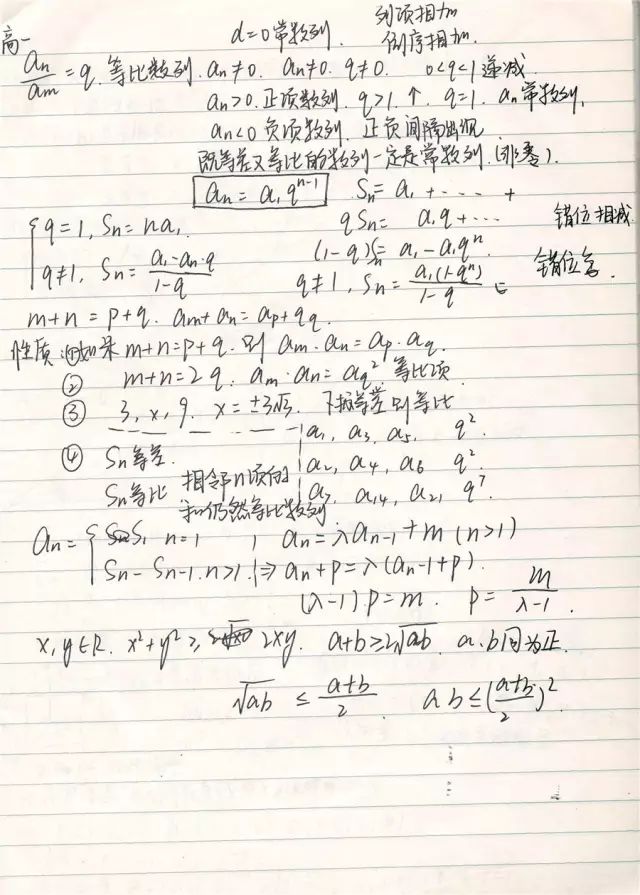 d=0常数列. 列项相加
高一 倒序相加.
an/am = q. 等比数列. an≠0. an≠0. q≠0. 0<q<1 递减.
an>0. 正项数列. q>1. ↑. q=1. an 常数列.
an<0 负项数列. 正负间隔出现
既等差又等比的数列一定是常数列. (非零).
an = a₁qⁿ⁻¹ Sn = a₁ + ---- +
{ q=1, Sn = na₁. qSn = a₁q + ··· 错位相减
(1-q)Sn = a₁-a₁qⁿ
q≠1, Sn = (a₁-an·q)/(1-q) q≠1, Sn = a₁(1-qⁿ)/(1-q) 错位
m+n = p+q. am+an = ap+qq.
性质: ①如果 m+n=p+q. 则 am·an = ap·aq.
② m+n=2q. am·an = aq². 等比项.
③ 3, x, 9. x = ±3√3. 下标等差则等比
a₁, a₃, a₅, q².
④ Sn等差. a₂, a₄, a₆ q².
Sn等比 相邻n项的 a₇, a₁₄, a₂₁ q⁷.
和仍然等比数列
an = { S₁ n=1 , an = λan-1 + m (n>1)
Sn - Sn-1. n>1. ⇒ an+p = λ(an-1+p).
(λ-1)p = m. p = m/(λ-1).
x, y∈R. x²+y² ≥ 2xy. a+b≥2√ab. a.b同为正.
√ab ≤ (a+b)/2. ab ≤ ((a+b)/2)².